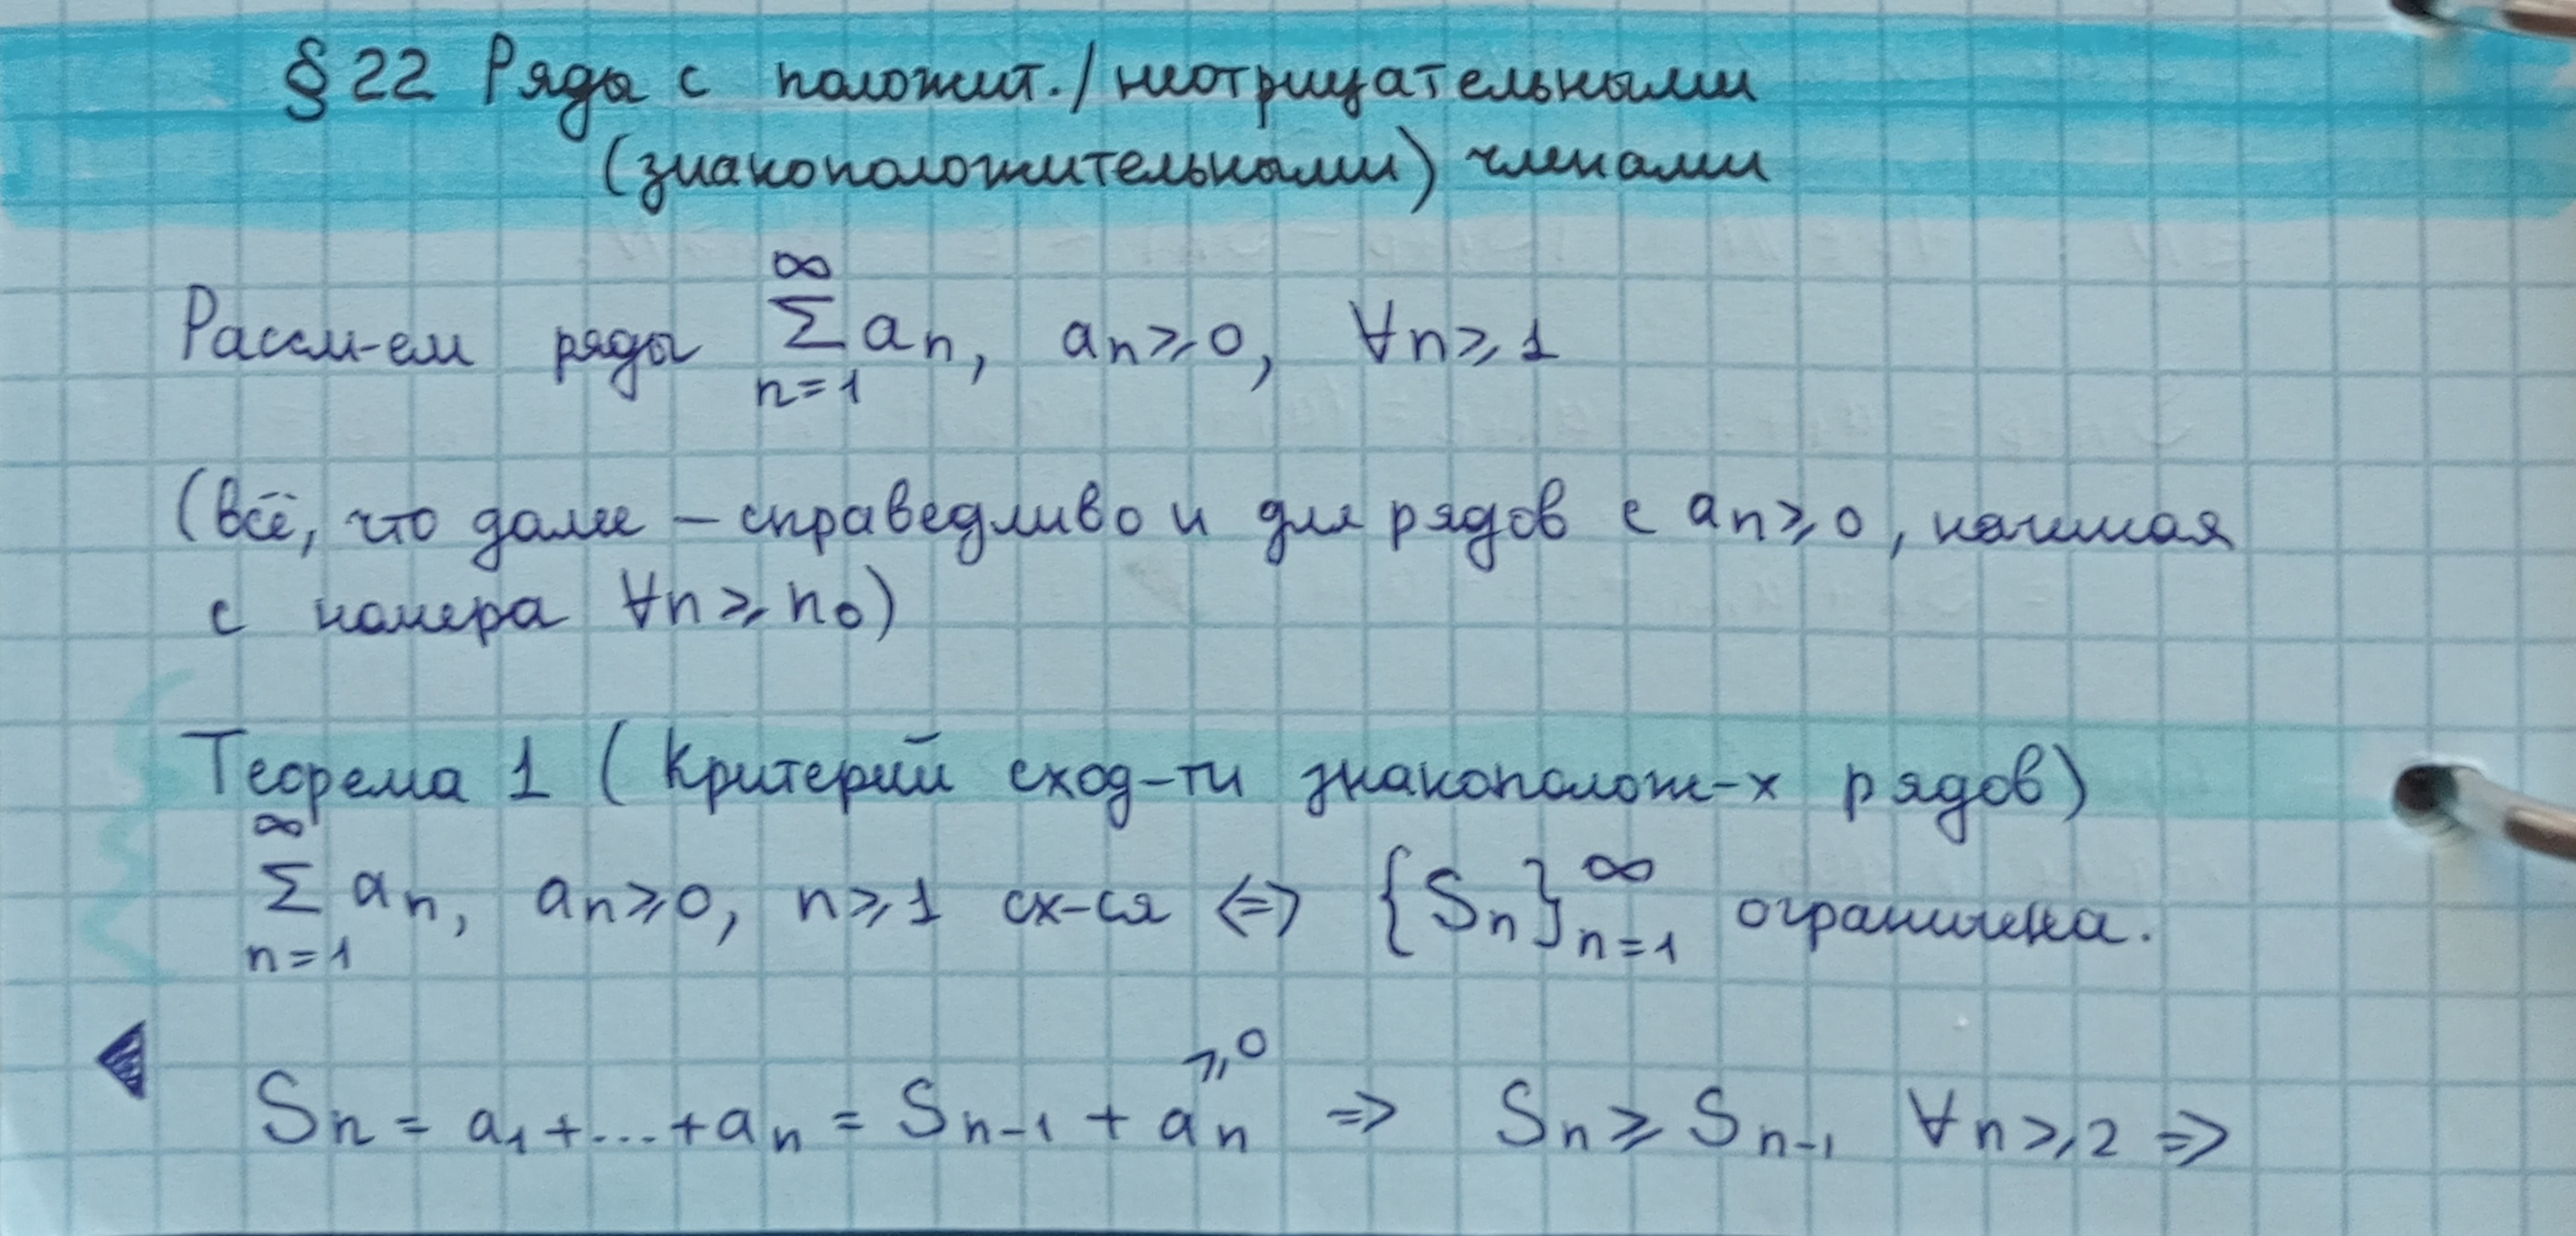 § 22 Ряды с положит. / неотрицательными
(знакоположительными) членами
Рассм-ем ряды ∑_{n=1}^{∞} aₙ, aₙ ⩾ 0, ∀n ⩾ 1
(всё, что далее – справедливо и для рядов с aₙ ⩾ 0, начиная
с номера ∀n ⩾ n₀)
Теорема 1 (Критерий сход-ти знакополож-х рядов)
∑_{n=1}^{∞} aₙ, aₙ ⩾ 0, n ⩾ 1 сх-ся ⟺ {Sₙ}_{n=1}^{∞} ограничена.
◀ Sₙ = a₁ + ... + aₙ = Sₙ₋₁ + aₙ^{⩾0} ⇒ Sₙ ⩾ Sₙ₋₁ ∀n ⩾ 2 ⇒